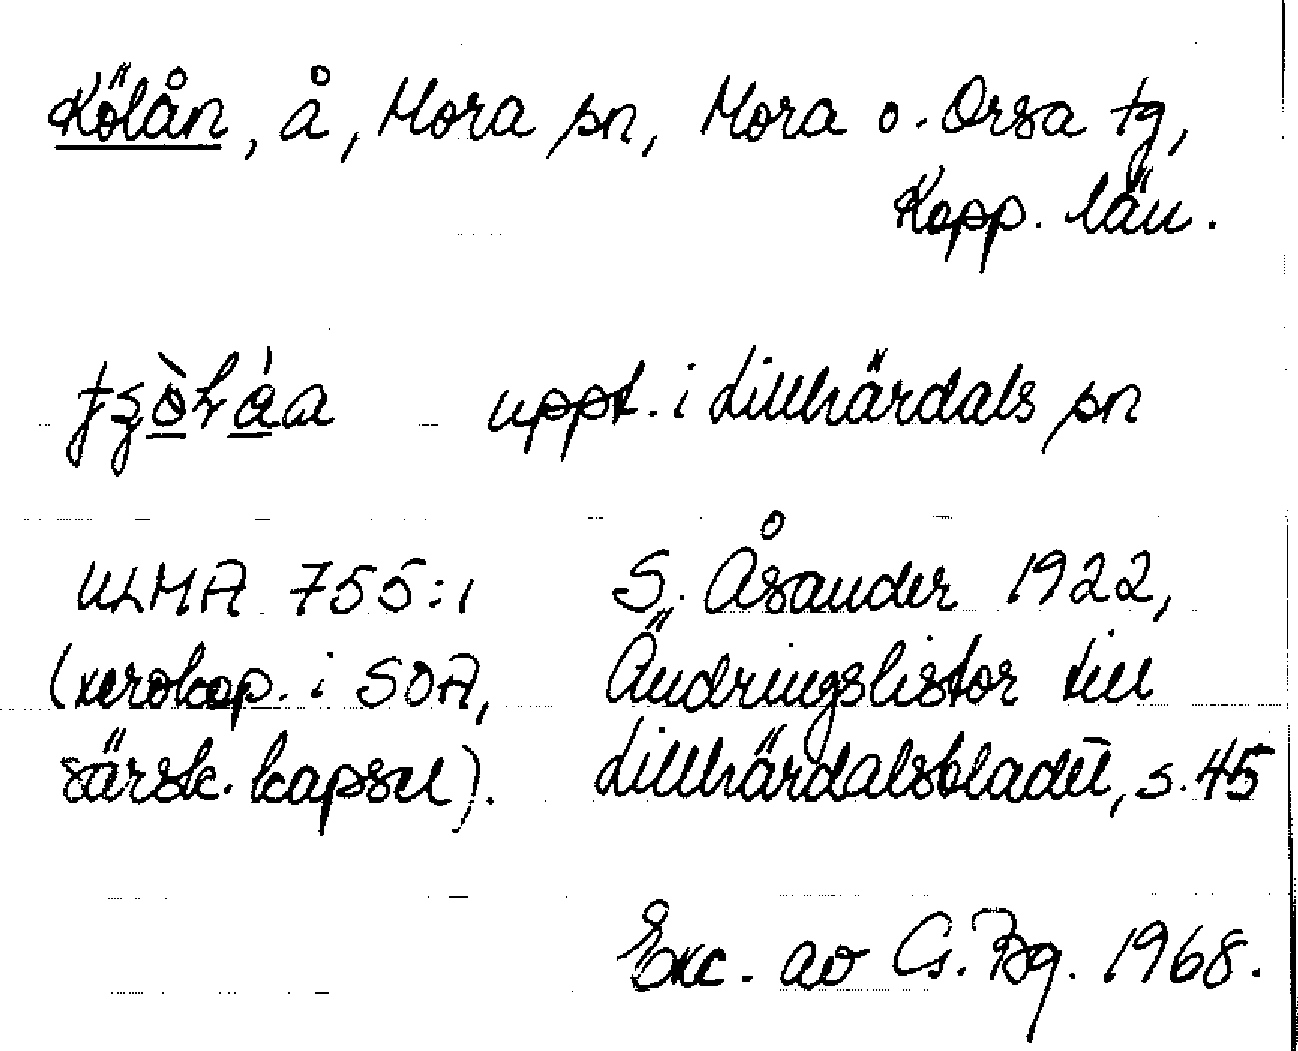 Kölån, å, Mora sn, Mora o. Orsa tg,
Kopp. län.
uppt. i Lillhärdals sn
ULMA 755:1 S. Åsander 1922,
(xerokop. i SOA, Ändringslistor till
särsk. kapsel). Lillhärdalsbladet, s. 45
Exc. av G. Bg. 1968.